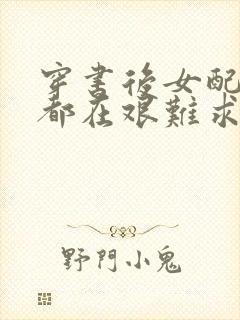 穿書後女配
都在艰難求
野門小鬼